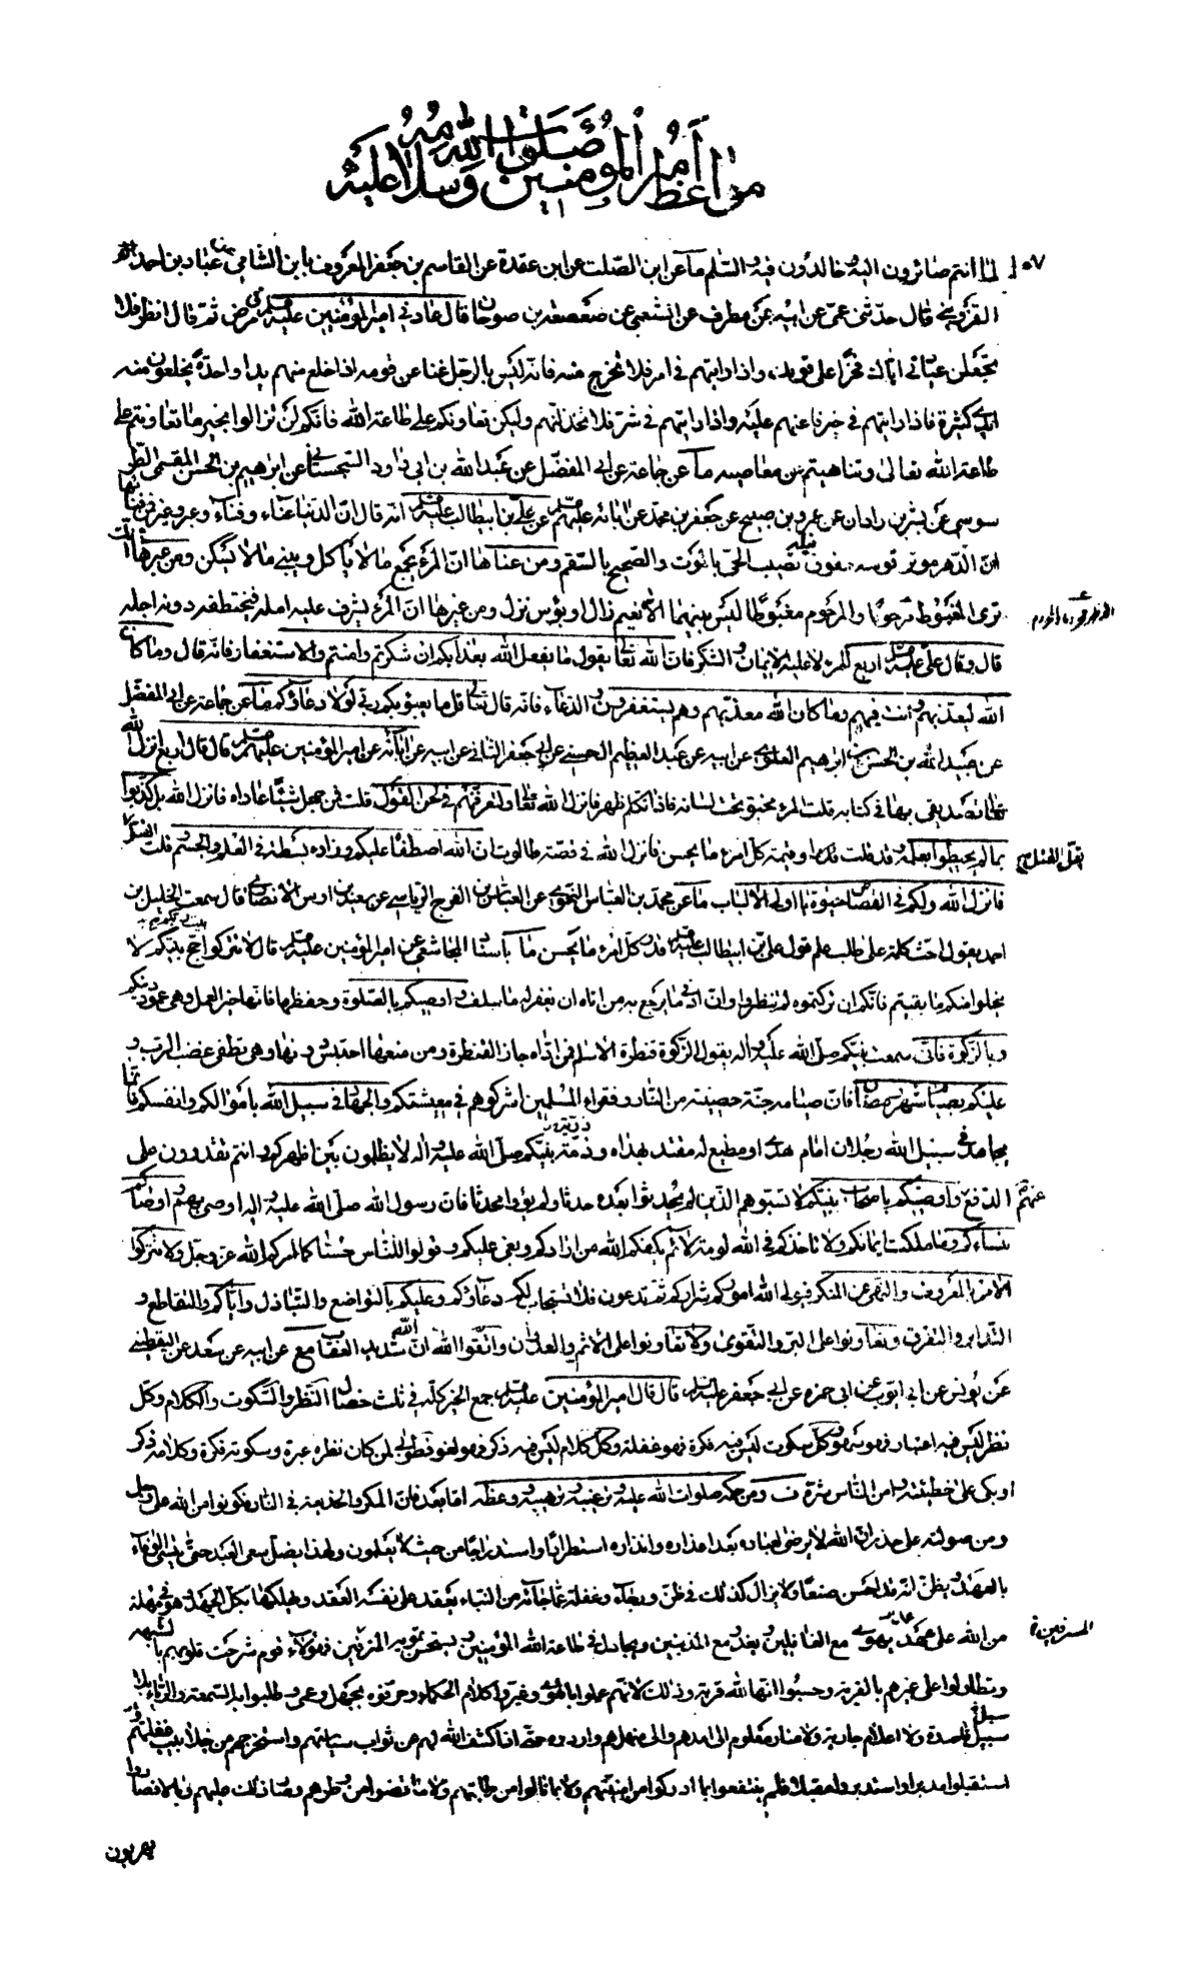 من مواعظ أمير المؤمنين صلوات الله وسلامه عليه
لما انتم صائرون اليه وخالدون فيه والسلم ما عن ابن الصلت عن ابن عقدة عن القاسم بن جعفر المعروف بابن الشامي عن عباد بن احمد
القزويني قال حدثني عمي عن ابيه عن مطرف عن الشعبي عن صعصعة بن صوحان قال عادني امير المؤمنين عليه في مرض ثم قال انظر فلا
تجعلن عيادتي اياك فخرا على قومك واذا رايتهم في امر فلا تخرج منه فانه ليس بالرجل غنا عن قومه اذا خلع منهم يدا واحدة يخلعون منه
ايدي كثيرة فاذا رايتهم في خير فاعنهم عليه واذا رايتهم في شر فلا تخذلنهم وليكن تعاونكم على طاعة الله فانكم لن تزالوا بخير ما تعاونتم على
طاعة الله تعالى وتناهيتم عن معاصيه ما عن جماعة عن ابي المفضل عن عبد الله بن ابي داود السجستاني عن ابرهيم بن الحسن المقسمي الطر
سوسي عن بشر بن زاذان عن عمر بن صبيح عن جعفر بن محمد عن ابائه عليهم عن علي بن ابيطالب عليه انه قال ان الدنيا عناء وفناء وعبر وغير فمن فنائها
ان الدهر موتر قوسه مفوق نبله يصيب الحي بالموت والصحيح بالسقم ومن عناها ان المرء يجمع ما لا ياكل ويبني ما لا يسكن ومن عبرها انك
ترى المغبوط مرحوما والمرحوم مغبوطا ليس بينهما الا نعيم زال او بؤس نزل ومن غيرها ان المرء يشرف عليه امله فيختطفه دونه اجله
قال وقال علي عليه اربع للمرء لا عليه الايمان والشكر فان الله تعالى يقول ما يفعل الله بعذابكم ان شكرتم وامنتم والاستغفار فانه قال وما كان
الله ليعذبهم وانت فيهم وما كان الله معذبهم وهم يستغفرون والدعاء فانه قال تعالى قل ما يعبؤ بكم ربي لولا دعاؤكم ما عن جماعة عن ابي المفضل
عن عبيد الله بن الحسن بن ابرهيم العلوي عن ابيه عن عبد العظيم الحسني عن ابي جعفر الثاني عن ابيه عن ابائه عن امير المؤمنين عليهم قال قلت اربع انزل الله
تعالى تصديقي بها في كتابه قلت المرء مخبو تحت لسانه فاذا تكلم ظهر فانزل الله تعالى ولتعرفنهم في لحن القول قلت فمن جهل شيئا عاداه فانزل الله بل كذبوا
بما لم يحيطوا بعلمه وقلت قدر او قيمة كل امرء ما يحسن فانزل الله في قصة طالوت ان الله اصطفاه عليكم وزاده بسطة في العلم والجسم قلت القتل
فانزل الله ولكم في القصاص حيوة يا اولي الالباب ما عن محمد بن العباس النحوي عن العباس بن الفرج الرياشي عن سعيد بن اوس الانصاري قال سمعت الخليل بن
احمد يقول احث كلمة على طلب علم قول علي بن ابيطالب عليه قدر كل امرء ما يحسن ما باسناد المجاشعي عن امير المؤمنين عليه قال لا تتركوا حج بيتكم لا
يخلوا منكم ما بقيتم فانكم ان تركتموه لم تنظروا وان ادنى ما يرجع به من اتاه ان يغفر له ما سلف واوصيكم بالصلوة وحفظها فانها خير العمل وهي عمود دينكم
وبالزكوة فاني سمعت نبيكم صلى الله عليه واله يقول الزكوة قنطرة الاسلام فمن اداه جاز القنطرة ومن منعها احتبس دونها وهي تطفئ غضب الرب و
عليكم بصيام شهر رمضان فان صيامه جنة حصينة من النار وفقراء المسلمين اشركوهم في معيشتكم والجهاد في سبيل الله باموالكم وانفسكم فانما
يجاهد في سبيل الله رجلان امام هدى او مطيع له مقتد بهداه وذرية نبيكم صلى الله عليه واله لا يظلمون بين اظهركم وانتم تقدرون على
الدفع عنهم واوصيكم باصحاب نبيكم لا تسبوهم الذين لم يحدثوا بعده حدثا ولم يؤوا محدثا فان رسول الله صلى الله عليه واله اوصى بهم واوصيكم
بنساءكم وما ملكت ايمانكم ولا تاخذكم في الله لومة لائم يكفكم الله من ارادكم وبغى عليكم وقولوا للناس حسنا كما امركم الله عز وجل ولا تتركوا
الامر بالمعروف والنهي عن المنكر فيولي الله اموركم شراركم ثم تدعون فلا يستجاب لكم دعاؤكم وعليكم بالتواضع والتباذل واياكم والتقاطع و
التدابر والتفرق وتعاونوا على البر والتقوى ولا تعاونوا على الاثم والعدوان واتقوا الله ان الله شديد العقاب مع عن ابيه عن سعد عن اليقطيني
عن يونس عن ابي ايوب عن ابي حمزه عن ابي جعفر عليه قال قال امير المؤمنين عليه جمع الخير كله في ثلث خصال النظر والسكوت والكلام وكل
نظر ليس فيه اعتبار فهو سهو وكل سكوت ليس فيه فكرة فهو غفلة وكل كلام ليس فيه ذكر فهو لغو فطوبى لمن كان نظره عبرة وسكوته فكرة وكلامه ذكر
او بكى على خطيئته وامن الناس شره ف ومن حكمه صلوات الله عليه وترغيبه وترهيبه ووعظه اما بعد فان المكر والخديعة في النار فكونوا من الله على وجل
ومن صولته على حذر ان الله لا يرضى لعباده بعد اعذاره وانذاره استطرادا واستدراجا من حيث لا يعلمون ولهذا يضل سعي العبد حتى ينسى الوفاء
بالعهد ويظن انه قد احسن صنعا ولا يزال كذلك في ظن ورجاء وغفلة عما جاءه من النباء يعقد على نفسه العقد ويهلكها بكل الجهد وهو في مهلة
من الله على عهد يهوي مع الغافلين ويغدو مع المذنبين ويجادل في طاعة الله المؤمنين ويستحسن تمويه المترفين فهؤلاء قوم شرحت قلوبهم بالشبهه
وتطاولوا على غيرهم بالفرية وحسبوا انها لله قربة وذلك لانهم عملوا بالهوى وغيروا كلام الحكماء وحرفوه بجهل وعمى وطلبوا به السمعة والرياء بلا
سبل قاصدة ولا اعلام جارية ولا منار معلوم الى امدهم والى منهل هم واردوه حتى اذا كشف الله لهم عن ثواب سياستهم واستخرجهم من جلابيب غفلتهم
استقبلوا مدبرا واستدبروا مقبلا فلم ينتفعوا بما ادركوا من امنيتهم ولا بما نالوا من طلبتهم ولا ما قضوا من وطرهم وصار ذلك عليهم وبالا فصاروا
يهربون